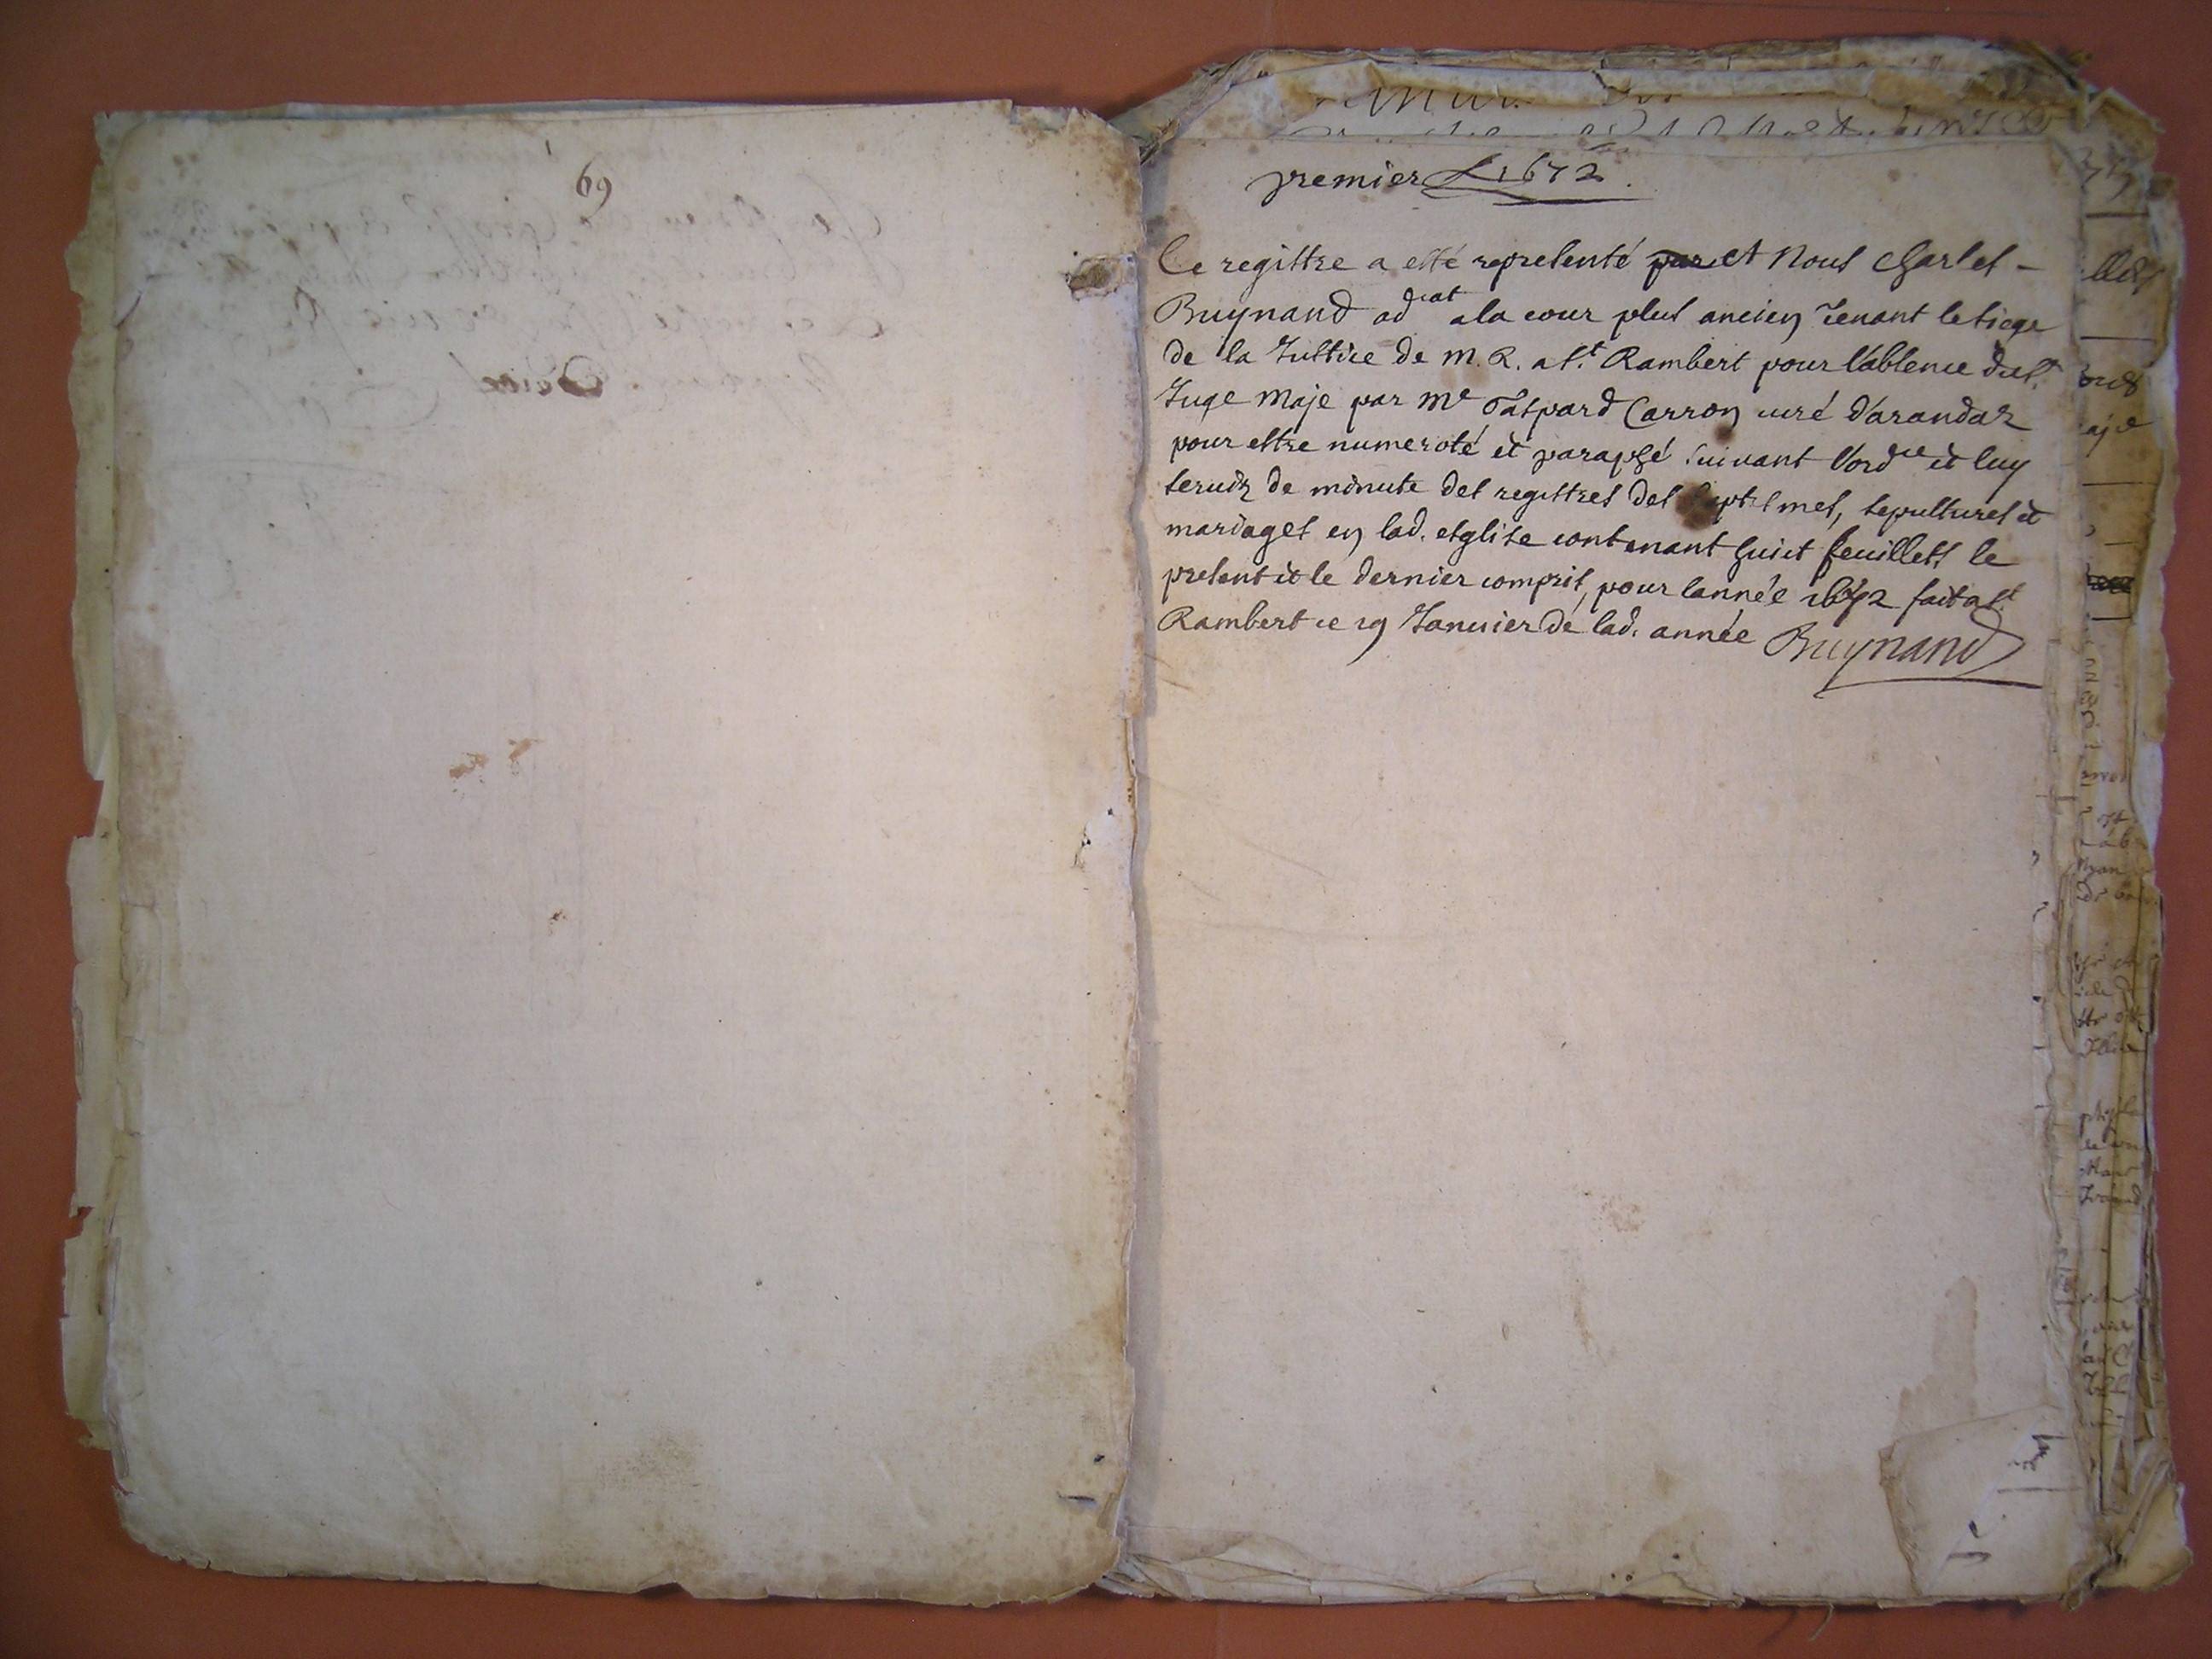 69
premier 1672.
Ce registre a esté representé par et Nous Charles -
Buynand advocat a la cour plus ancien tenant le siege
de la Justice de M. R. a St. Rambert pour l'absence du Sr.
Juge Maje par Me Gaspard Carron curé d'arandaz
pour estre numeroté et paraphé suivant l'ordce et luy
servir de minute des registres des baptesmes, sepultures et
mariages en lad. esglise contenant huict feuillets le
present et le dernier compris, pour l'année 1672 fait a St
Rambert ce 19 Januier de lad. année Buynand